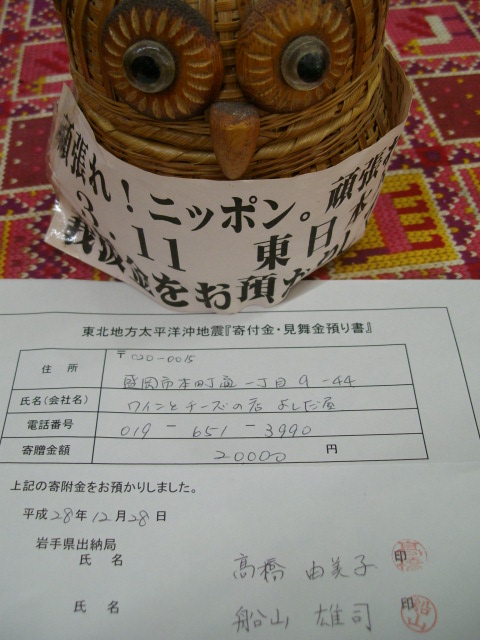 頑張れ！ニッポン。頑張
3.11 東日本
義援金をお預か
東北地方太平洋沖地震『寄付金・見舞金預り書』
住 所
〒020-0015
盛岡市本町通一丁目9-44
氏名(会社名)
ワインとチーズの店 よしだ屋
電話番号
019-651-3990
寄贈金額
20000 円
上記の寄附金をお預かりしました。
平成28年12月28日
岩手県出納局
氏 名
高橋 由美子 印 高橋
氏 名
船山 雄司 印 船山